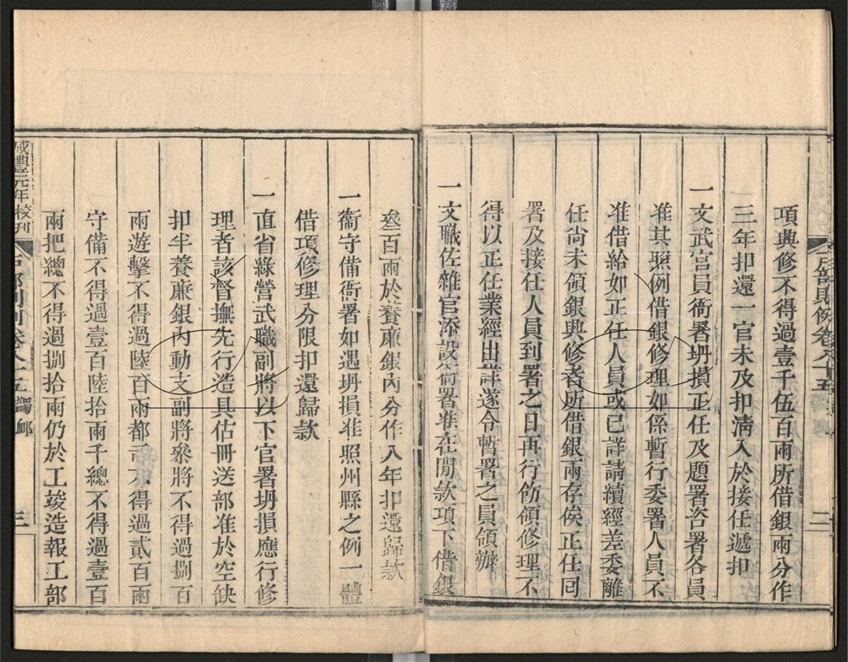 戶部則例卷八十五
二
項興修不得過壹千伍百兩所借銀兩分作
三年扣還一官未及扣淸入於接任遞扣
一文武官員衙署坍損正任及題署咨署各員
准其照例借銀修理如係暫行委署人員不
准借給如正任人員或已詳請續經差委離
任尚未領銀興修者所借銀兩存俟正任囘
署及接任人員到署之日再行飭領修理不
得以正任業經出詳遂令暫署之員領辦
一文職佐雜官添設衙署准在閒款項下借銀
叁百兩於養廉銀內分作八年扣還歸款
一衞守備衙署如遇坍損准照州縣之例一體
借項修理分限扣還歸款
一直省綠營武職副將以下官署坍損應行修
理者該督撫先行造具估冊送部准於空缺
扣半養廉銀內動支副將叅將不得過捌百
兩遊擊不得過陸百兩都司不得過貳百兩
守備不得過壹百陸拾兩千總不得過壹百
兩把總不得過捌拾兩仍於工竣造報工部
咸豐元年校刊
戶部則例卷八十五
蠲卹
三